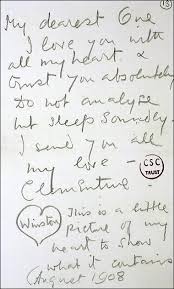 (13)
My dearest One
I love you with
all my heart &
trust you absolutely
Do not analyse
but sleep soundly.
I send you all
my love -
CSC
TRUST
Clementine -
Winston
This is a little
picture of my
heart to show
what it contains
August 1908